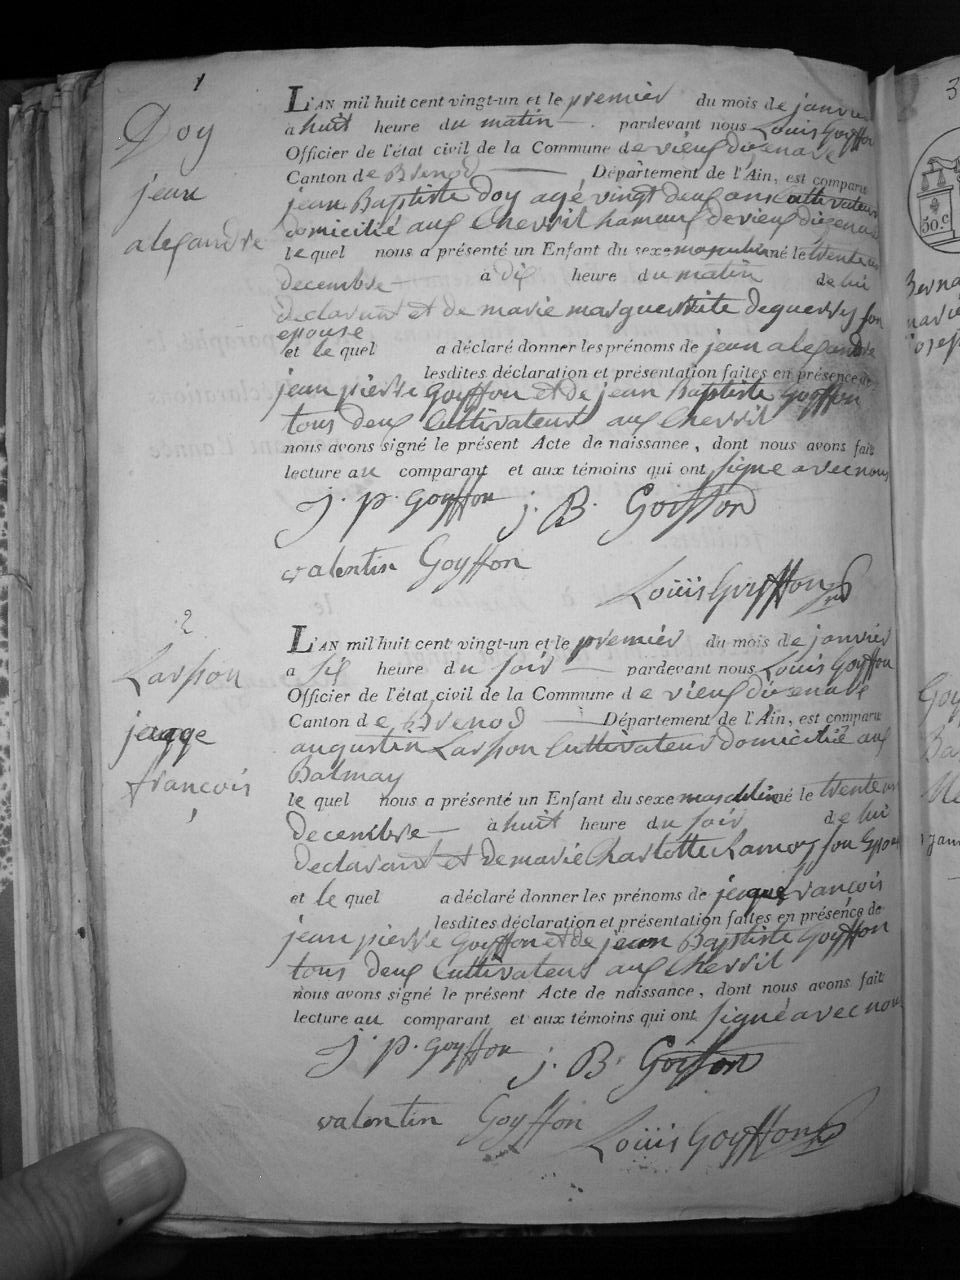 1
Doy
jean
alexandre
L'AN mil huit cent vingt-un et le premier du mois de janvier
a huit heure du matin pardevant nous Louis Goyffon
Officier de l'état civil de la Commune de vieux dizenave
Canton de Brenod Département de l'Ain, est comparu
jean Baptiste Doy agé vingt deux ans Cultivateur
domicilié aux Cherril hameux de vieux dizenave
le quel nous a présenté un Enfant du sexe masculin né le trente un
decembre à dix heure du matin de lui
declarant et de marie marguerite deguerry son
epouse
et le quel a déclaré donner les prénoms de jean alexandre
lesdites déclaration et présentation faites en présence de
jean pierre Goyffon et de jean Baptiste Goyffon
tous deux Cultivateurs aux Cherril
nous avons signé le présent Acte de naissance, dont nous avons fait
lecture au comparant et aux témoins qui ont signé avec nous
j. p. goyffon j. B. Goiffon
valentin Goyffon
Louis Goyffon
2
Larson
jaqque
françois
L'AN mil huit cent vingt-un et le premier du mois de janvier
a six heure du soir pardevant nous Louis Goyffon
Officier de l'état civil de la Commune de vieux dizenave
Canton de Brenod Département de l'Ain, est comparu
augustin Larson Cultivateur domicilié aux
Balmay
le quel nous a présenté un Enfant du sexe masculin né le trente un
decembre à huit heure du soir de lui
declarant et de marie Charlotte son Epouse
et le quel a déclaré donner les prénoms de jaqque françois
lesdites déclaration et présentation faites en présence de
jean pierre Goyffon et de jean Baptiste Goyffon
tous deux Cultivateurs aux Cherril
nous avons signé le présent Acte de naissance, dont nous avons fait
lecture au comparant et aux témoins qui ont signé avec nous
j. p. goyffon j. B. Goiffon
valentin Goyffon
Louis Goyffon
3
50.c